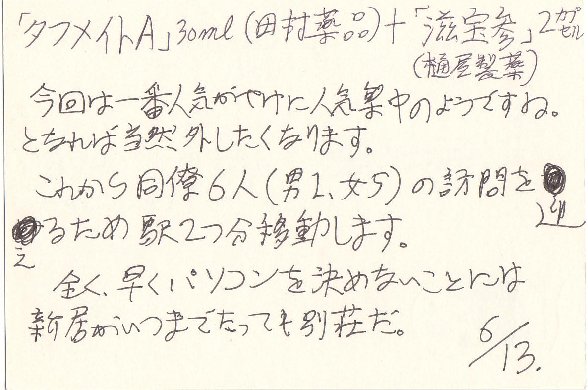 「タフメイトA」30ml(田村薬品)+「滋宝参」2カプセル
(樋屋製薬)
今回は一番人気がやけに人気集中のようですね。
となれば当然外したくなります。
これから同僚6人(男1、女5)の訪問を迎
えるため駅2つ分移動します。
全く、早くパソコンを決めないことには
新居がいつまでたっても別荘だ。
6/13.